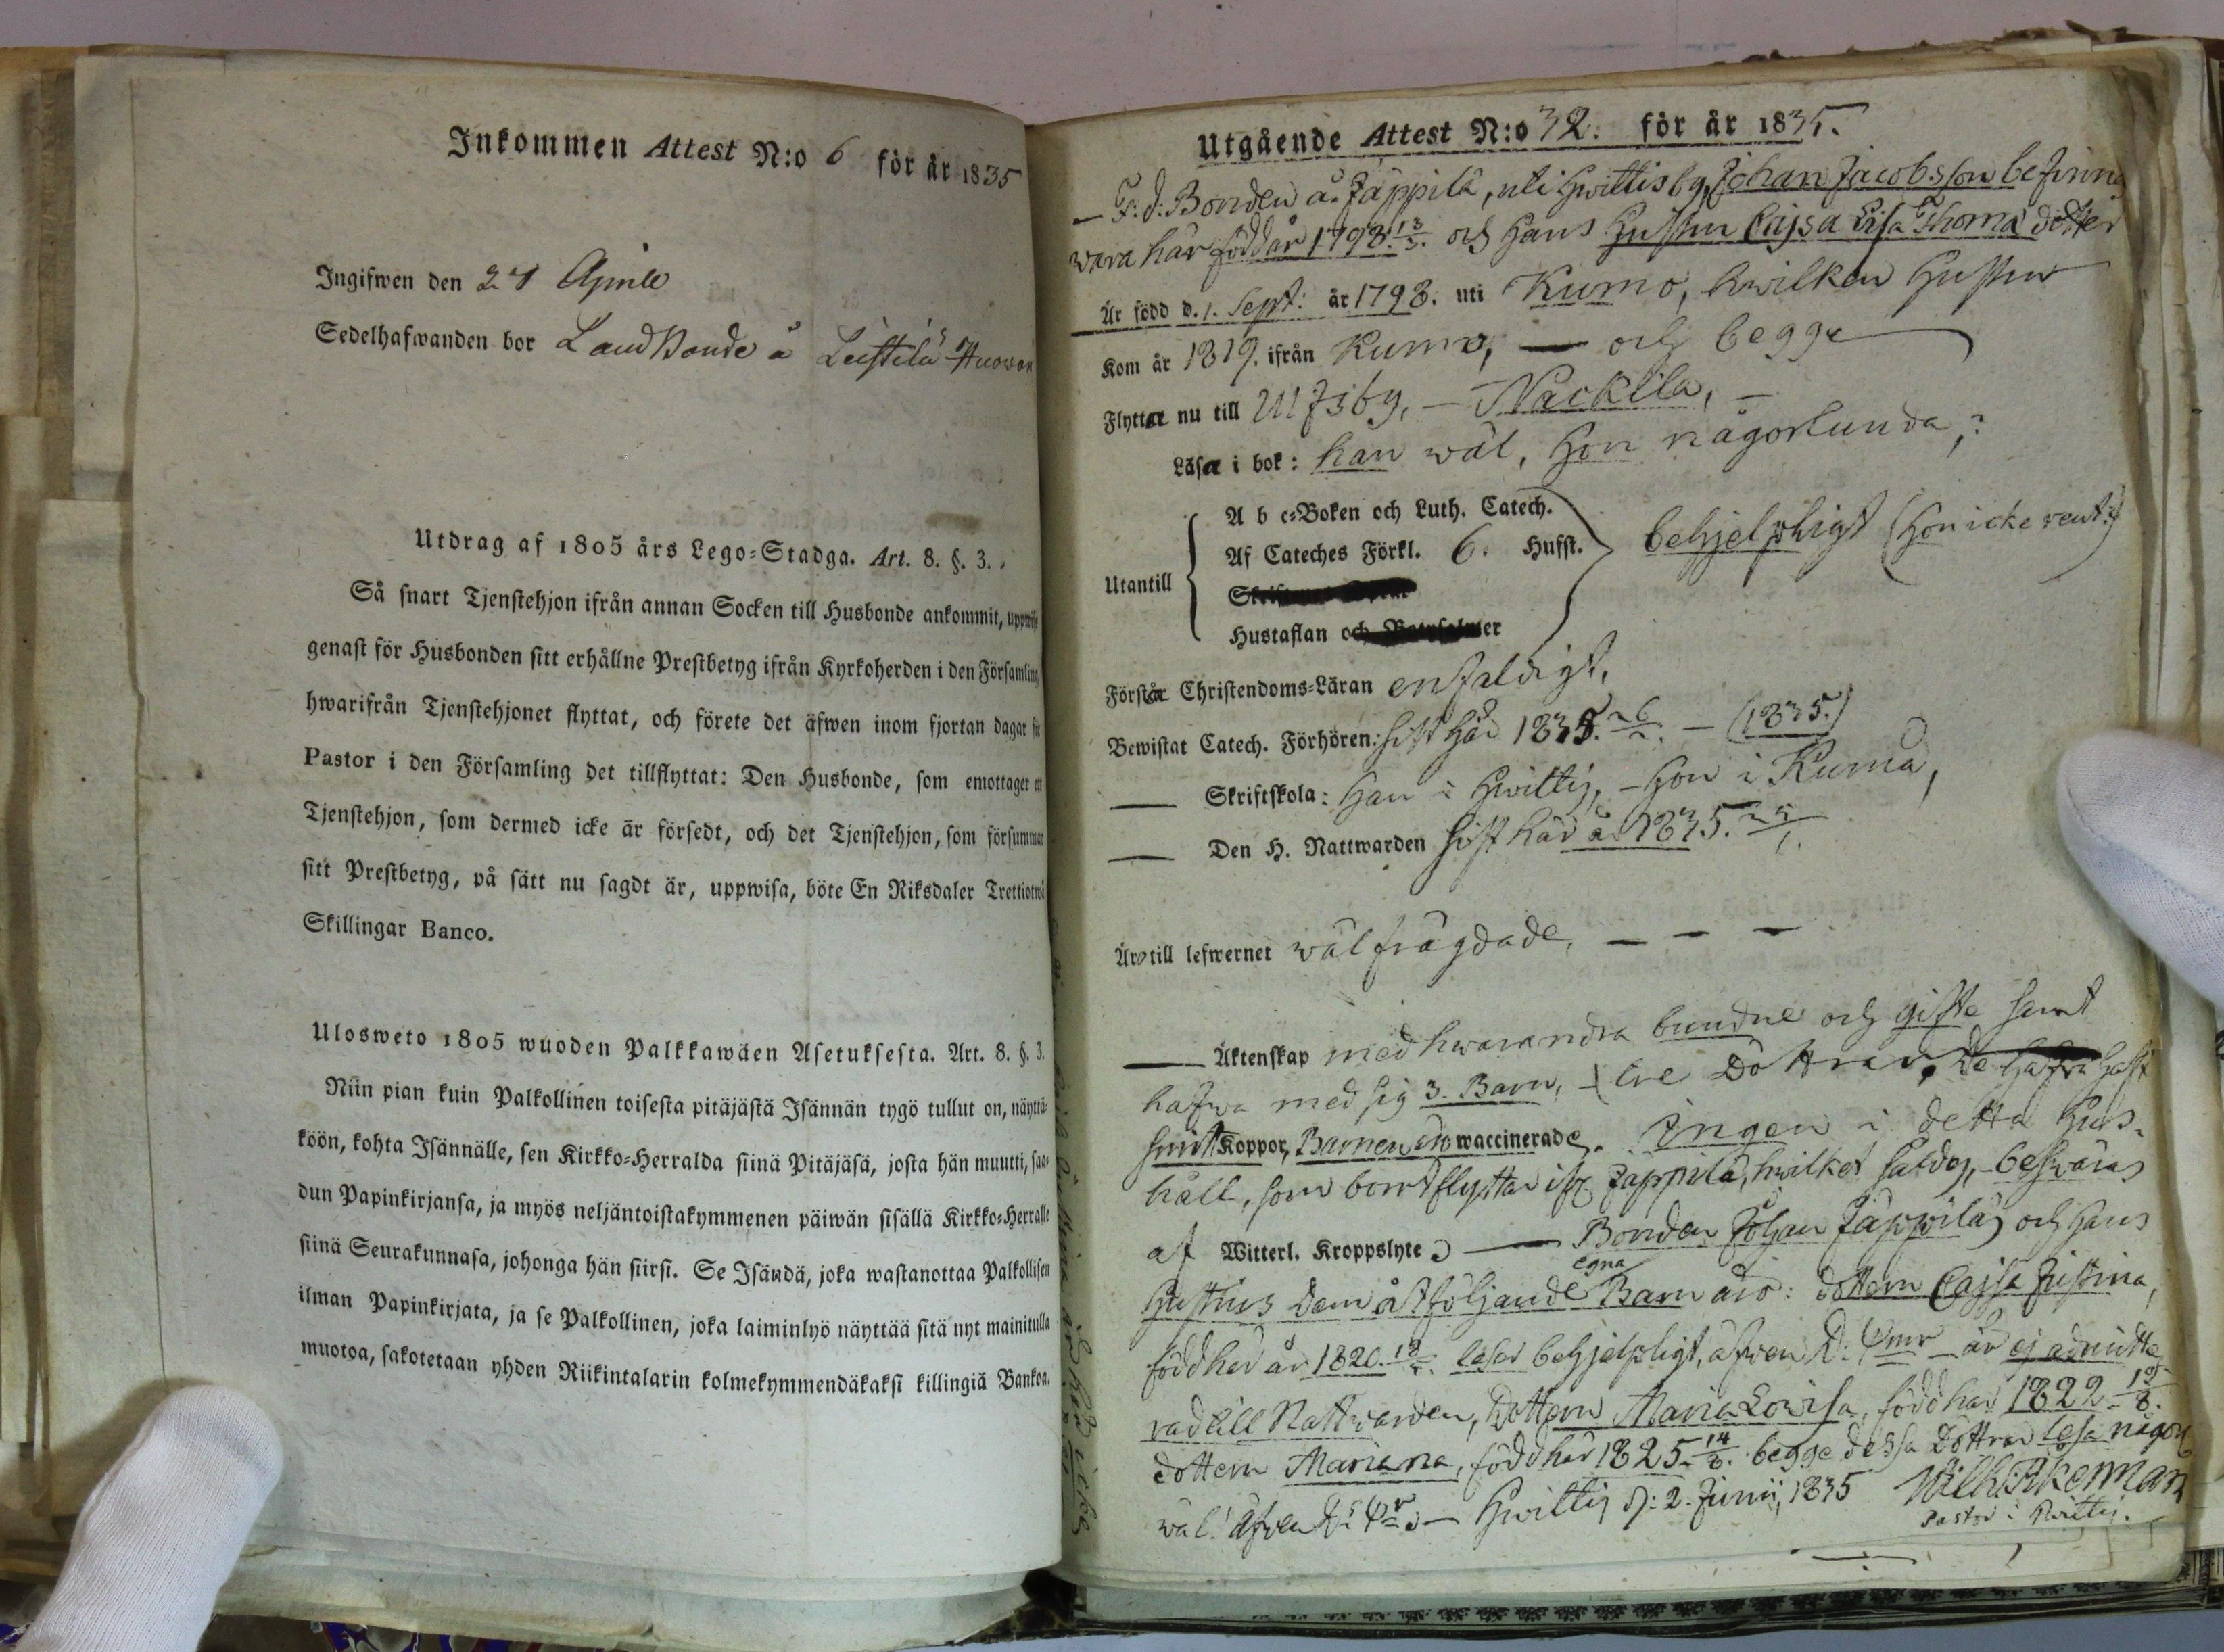 Inkommen Attest N:o 6 för år 1835
Ingifwen den 27 Aprile
Sedelhafwanden bor Landbonde å Leistilä
Utdrag af 1805 års Lego-Stadga. Art. 8. §. 3.
Så snart Tjenstehjon ifrån annan Socken till Husbonde ankommit, uppwise
genast för Husbonden sitt erhållne Prestbetyg ifrån Kyrkoherden i den Församling
hwarifrån Tjenstehjonet flyttat, och förete det äfwen inom fjortan dagar för
Pastor i den Församling det tillflyttat: Den Husbonde, som emottager ett
Tjenstehjon, som dermed icke är försedt, och det Tjenstehjon, som försummar
sitt Prestbetyg, på sätt nu sagdt är, uppwisa, böte En Riksdaler Trettiotwå
Skillingar Banco.
Ulosweto 1805 wuoden Palkkawäen Asetuksesta. Art. 8. §. 3.
Niin pian kuin Palkollinen toisesta pitäjästä Isännän tygö tullut on, näyttä-
köön, kohta Isännälle, sen Kirkko-Herralda siinä Pitäjäsä, josta hän muutti, saa-
dun Papinkirjansa, ja myös neljäntoistakymmenen päiwän sisällä Kirkko-Herralle
siinä Seurakunnasa, johonga hän siirsi. Se Isändä, joka wastanottaa Palkollisen
ilman Papinkirjata, ja se Palkollinen, joka laiminlyö näyttää sitä nyt mainitulla
muotoa, sakotetaan yhden Riikintalarin kolmekymmendäkaksi killingiä Bankoa.
Utgående Attest N:o 32. för år 1835.
F: d: Bonden å Jäppilä, uti Hwittisby, Johan Jacobsson befinne
wara här född år 1793. 13/3. och hans Hustru Cajsa Lisa Thomä dotter
Är född d. 1. Sept: år 1798. uti Kumo, hwilken Hustru
Kom år 1819. ifrån Kumo, — och begge
Flyttar nu till Ulfsby, — Nackila, —
Läser i bok: han wäl, Hon någorlunda;
A b c-Boken och Luth. Catech.
Af Cateches Förkl. 6. Husst. behjelpligt (Hon icke rent)
Utantill
Hustaflan
Förstår Christendoms-Läran enfaldigt.
Bewistat Catech. Förhören: sist här 1835. 26/2. — (1835.)
— Skriftskola: Han i Hwittis, — Hon i Kumo,
— Den H. Nattwarden sist här år 1835. 25/1.
Äro till lefwernet wälfrägdade, — — —
— Äktenskap med hwarandra bundne och gifte samt
hafwa med sig 3. Barn, tre Döttrar, De hafwa haft
Koppor, Barnen äro waccinerade. Ingen i detta Hus-
håll, som bortflyttar ifr. Jäppilä, hwilket såldes, beswäras
af Witterl. Kroppslyte — Bonden Johan Jäppiläs och hans
egna
Hustrus dem åtföljande Barn äro: dottern Cajsa Justina,
född här år 1820. läser behjelpligt, äfwen D: är ej admitte-
rad till Nattwarden, Dottern Maria Lowisa, född här 1822. 19/8.
dottern Mariana, född här 1825. 14/8. begge dessa Döttrar läsa någorl.
wäl: äfwen — Hwittis d: 2. Junii, 1835 Wilh. Åkerman
Pastor i Hwittis.